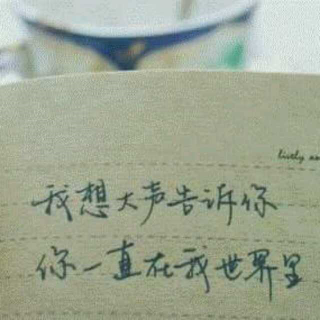 lively
我想大声告诉你
你一直在我世界里